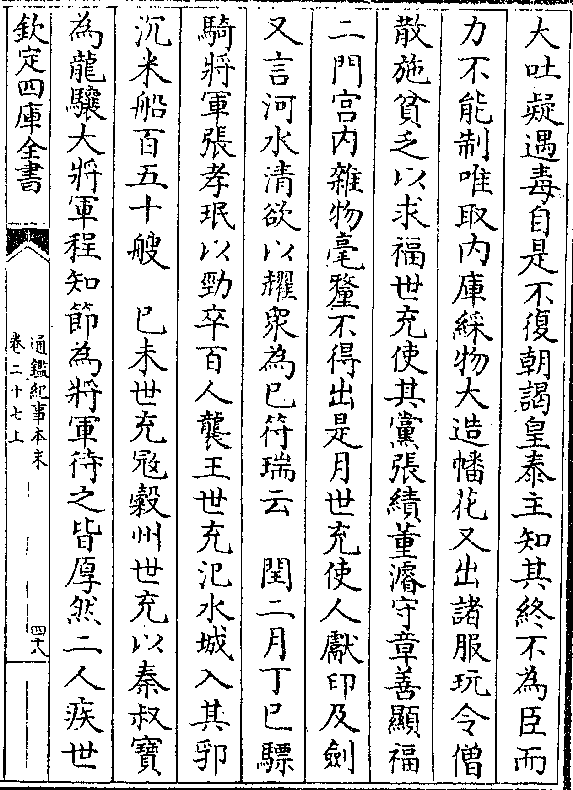 大吐疑遇毒自是不復朝謁皇泰主知其終不為臣而
力不能制唯取内庫綵物大造幡花又出諸服玩令僧
散施貧乏以求福世充使其黨張績董濬守章善顯福
二門宫内雜物毫釐不得出是月世充使人獻印及劍
又言河水清欲以耀衆為已符瑞云　閏二月丁巳驃
騎將軍張孝珉以勁卒百人襲王世充汜水城入其郛
沉米船百五十艘　已未世充宼榖州世充以秦叔寳
為龍驤大將軍程知節為將軍待之皆厚然二人疾世
欽定四庫全書
通鑑紀事本末
卷二十七上
四十八